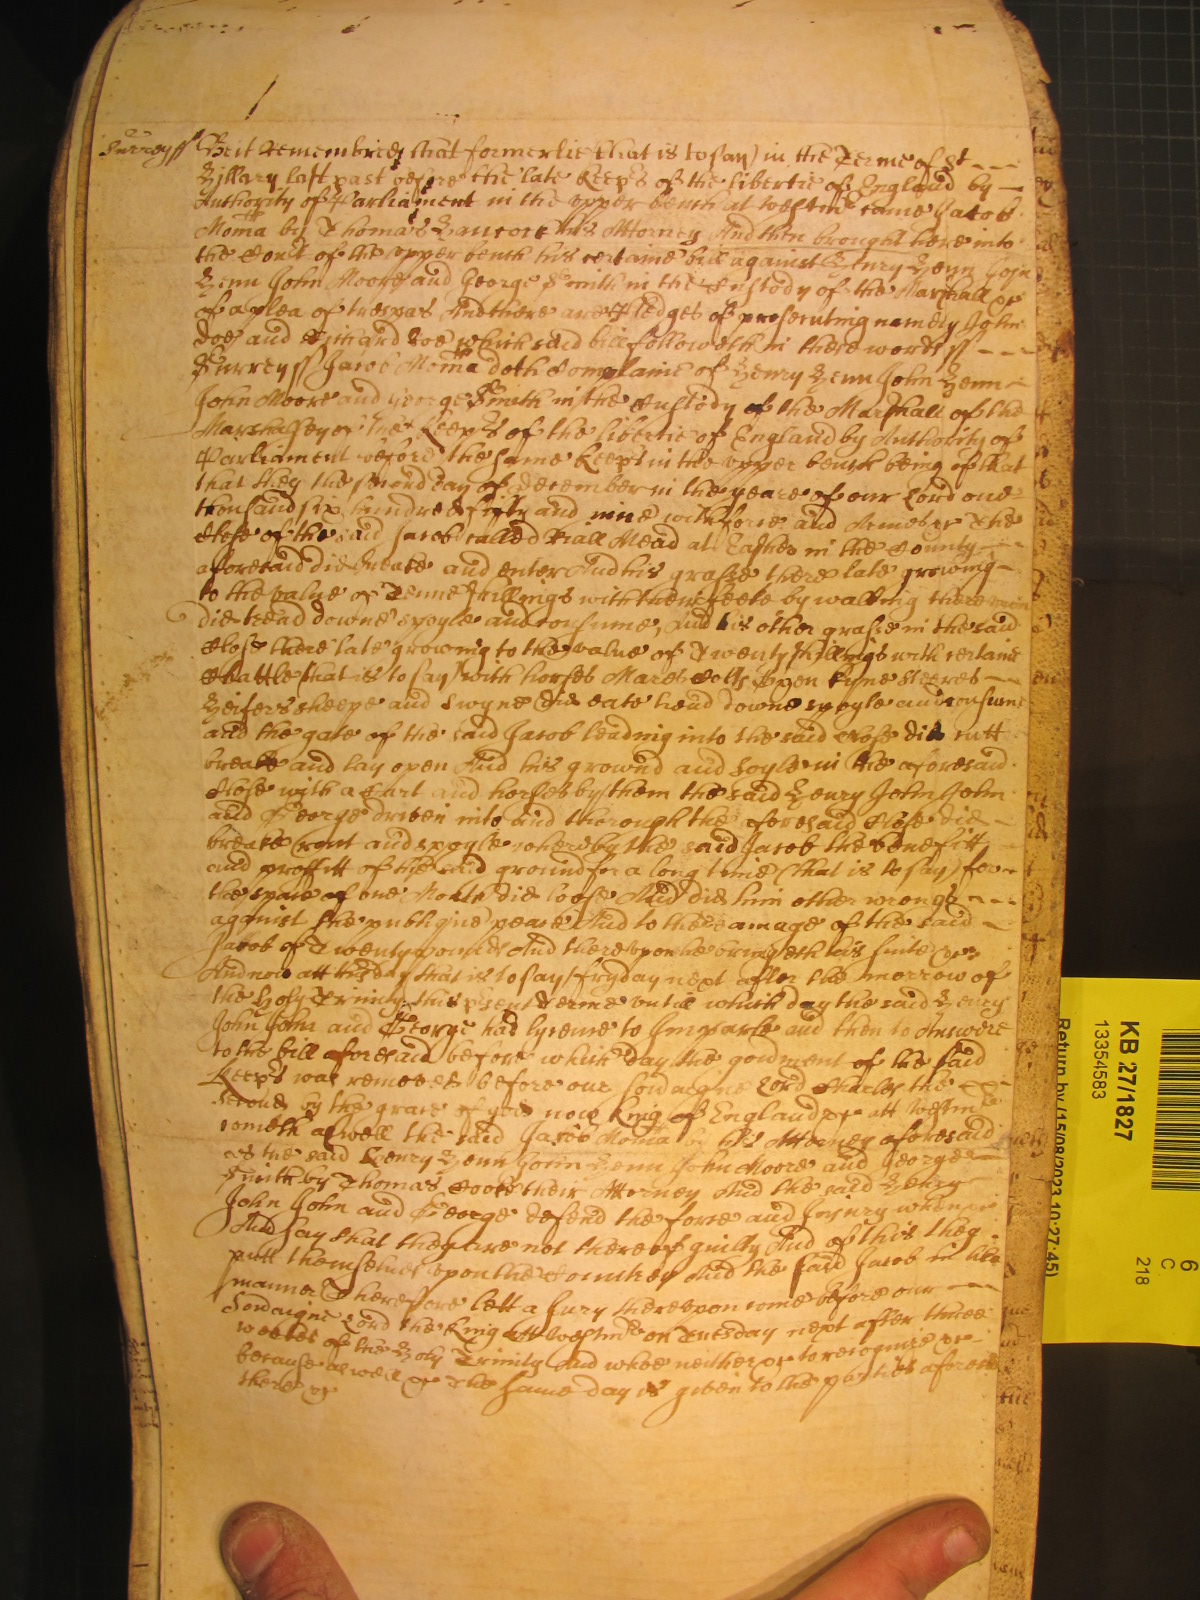 Surrey ss Be it Remembred that formerlie (that is to say) in the Terme of St
Hillary last past before the late Keeps of the libertie of England by
Authority of Parliament in the upper bench at Westmr came Jacob
Momma by Thomas his Attorney And then brought here into
the Court of the upper bench his certaine bill against Henry Henn John
Henn John Moore and George Smith in the Custody of the Marshall &c
of a plea of trespas And there are Pledges of prosecuting namely John
Doe and Richard Roe which said bill followeth in these words ss
Surrey ss Jacob Momma doth Complaine of Henry Henn John Henn
John Moore and George Smith in the Custody of the Marshall of the
Marshalsey of the Keeps of the libertie of England by Authority of
Parliament before the same Keeps in the upper bench being of that
that they the second day of December in the yeare of our Lord one
thousand six hundred fifty and nine with force and Armes &c The
Close of the said Jacob called Mead at in the County
aforesaid did breake and enter And his grasse there late growing
to the value of Tenne shillings with their feete by walking there
did tread downe spoyle and consume, And his other grasse in the said
Close there late growing to the value of Twenty shillings with certaine
Chattle (that is to say) with horses Mares Colts Oxen Kyne Steeres
Heifers sheepe and Swyne did eate tread downe spoyle and consume
and the gate of the said Jacob leading into the said Close did cutt
breake and lay open And his ground and soyle in the aforesaid
Close with a Cart and horses by them the said Henry John John
and George driven into and through the aforesaid Close did
breake and spoyle whereby the said Jacob the benefitt
and proffitt of the said ground for a long time (that is to say) for
the space of one Month did loose And did him other wrongs
against the publique peace And to the damage of the said
Jacob of Twenty pounds And thereupon he bringeth his suite &c
And now att this day that is to say fryday next after the morrow of
the Holy Trinity this psent Terme untill which day the said Henry
John John and George had lycence to Imparle and then to Answere
to the bill aforesaid before which day the of the said
Keeps was removed before our Lord Charles the
Second by the grace of god now King of England &c att Westmr
cometh aswell the said Jacob Momma by his Attorney aforesaid
as the said Henry Henn John Henn John Moore and George
Smith by Thomas Cooke their Attorney And the said Henry
John John and George defend the force and Injury when &c
And say that they are not thereof guilty And of this they
putt themselves upon the Countrey And the said Jacob in like
manner Therefore lett a Jury thereupon come before our
Lord the King att Westmr on Tuesday next after three
weekes of the Holy Trinity And whoe neither &c to recognize &c
because aswell &c The same day is given to the parties aforesaid
there &c
KB 27/1827
13354583
Return by (15/08/2023 10:27:45)
6
C
218